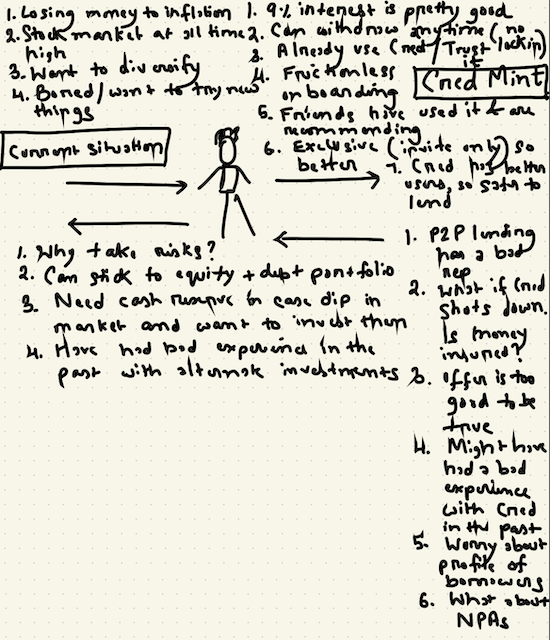 1. Losing money to inflation
2. Stock market at all time
high
3. Want to diversify
4. Bored / want to try new
things
Current situation
1. 9% interest is pretty good
2. Can withdraw anytime (no
lockin)
3. Already use Cred / Trust
it
Cred Mint
4. Frictionless
onboarding
5. Friends have used it & are
recommending
6. Exclusive (invite only) so
better
7. Cred has better
users, so safer to
lend
1. Why take risks?
2. Can stick to equity + dept portfolio
3. Need cash reserve in case dip in
market and want to invest then
4. Have had bad experience in the
past with alternate investments
1. P2P lending
has a bad
rep
2. What if Cred
shots down.
Is money
insured?
3. Offer is too
good to be
true
4. Might have
had a bad
experience
with Cred
in the past
5. Worry about
profile of
borrowers
6. What about
NPAs